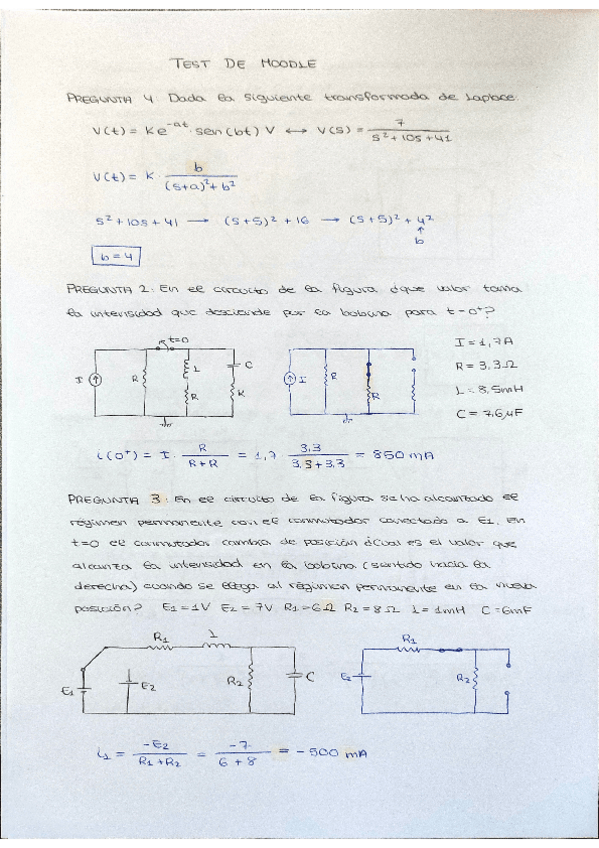 TEST DE MOODLE
PREGUNTA 4: Dada la siguiente transformada de Laplace.
V(t) = Ke^-at · sen(bt) V ↔ V(s) = 7 / (s² + 10s + 41)
V(t) = K · b / ((s+a)² + b²)
s² + 10s + 41 → (s+5)² + 16 → (s+5)² + 4²
↑
b
b = 4
PREGUNTA 2: En el circuito de la figura ¿que valor toma
la intensidad que desciende por la bobina para t=0⁺?
t=0
I R L R C R
I R R
I = 1,7A
R = 3,3Ω
L = 8,5mH
C = 7,6μF
i(0⁺) = I · R / (R+R) = 1,7 3,3 / (3,3+3,3) = 850 mA
PREGUNTA 3: En el circuito de la figura se ha alcanzado el
régimen permanente con el conmutador conectado a E1. En
t=0 el conmutador cambia de posición ¿Cual es el valor que
alcanza la intensidad en la bobina (sentido hacia la
derecha) cuando se llega al régimen permanente en la nueva
posición? E1 = 1V E2 = 7V R1 = 6Ω R2 = 8Ω L = 1mH C = 6mF
R1 L
E1 E2 R2 C
R1
E2 R2
i1 = -E2 / (R1+R2) = -7 / (6+8) = -500 mA